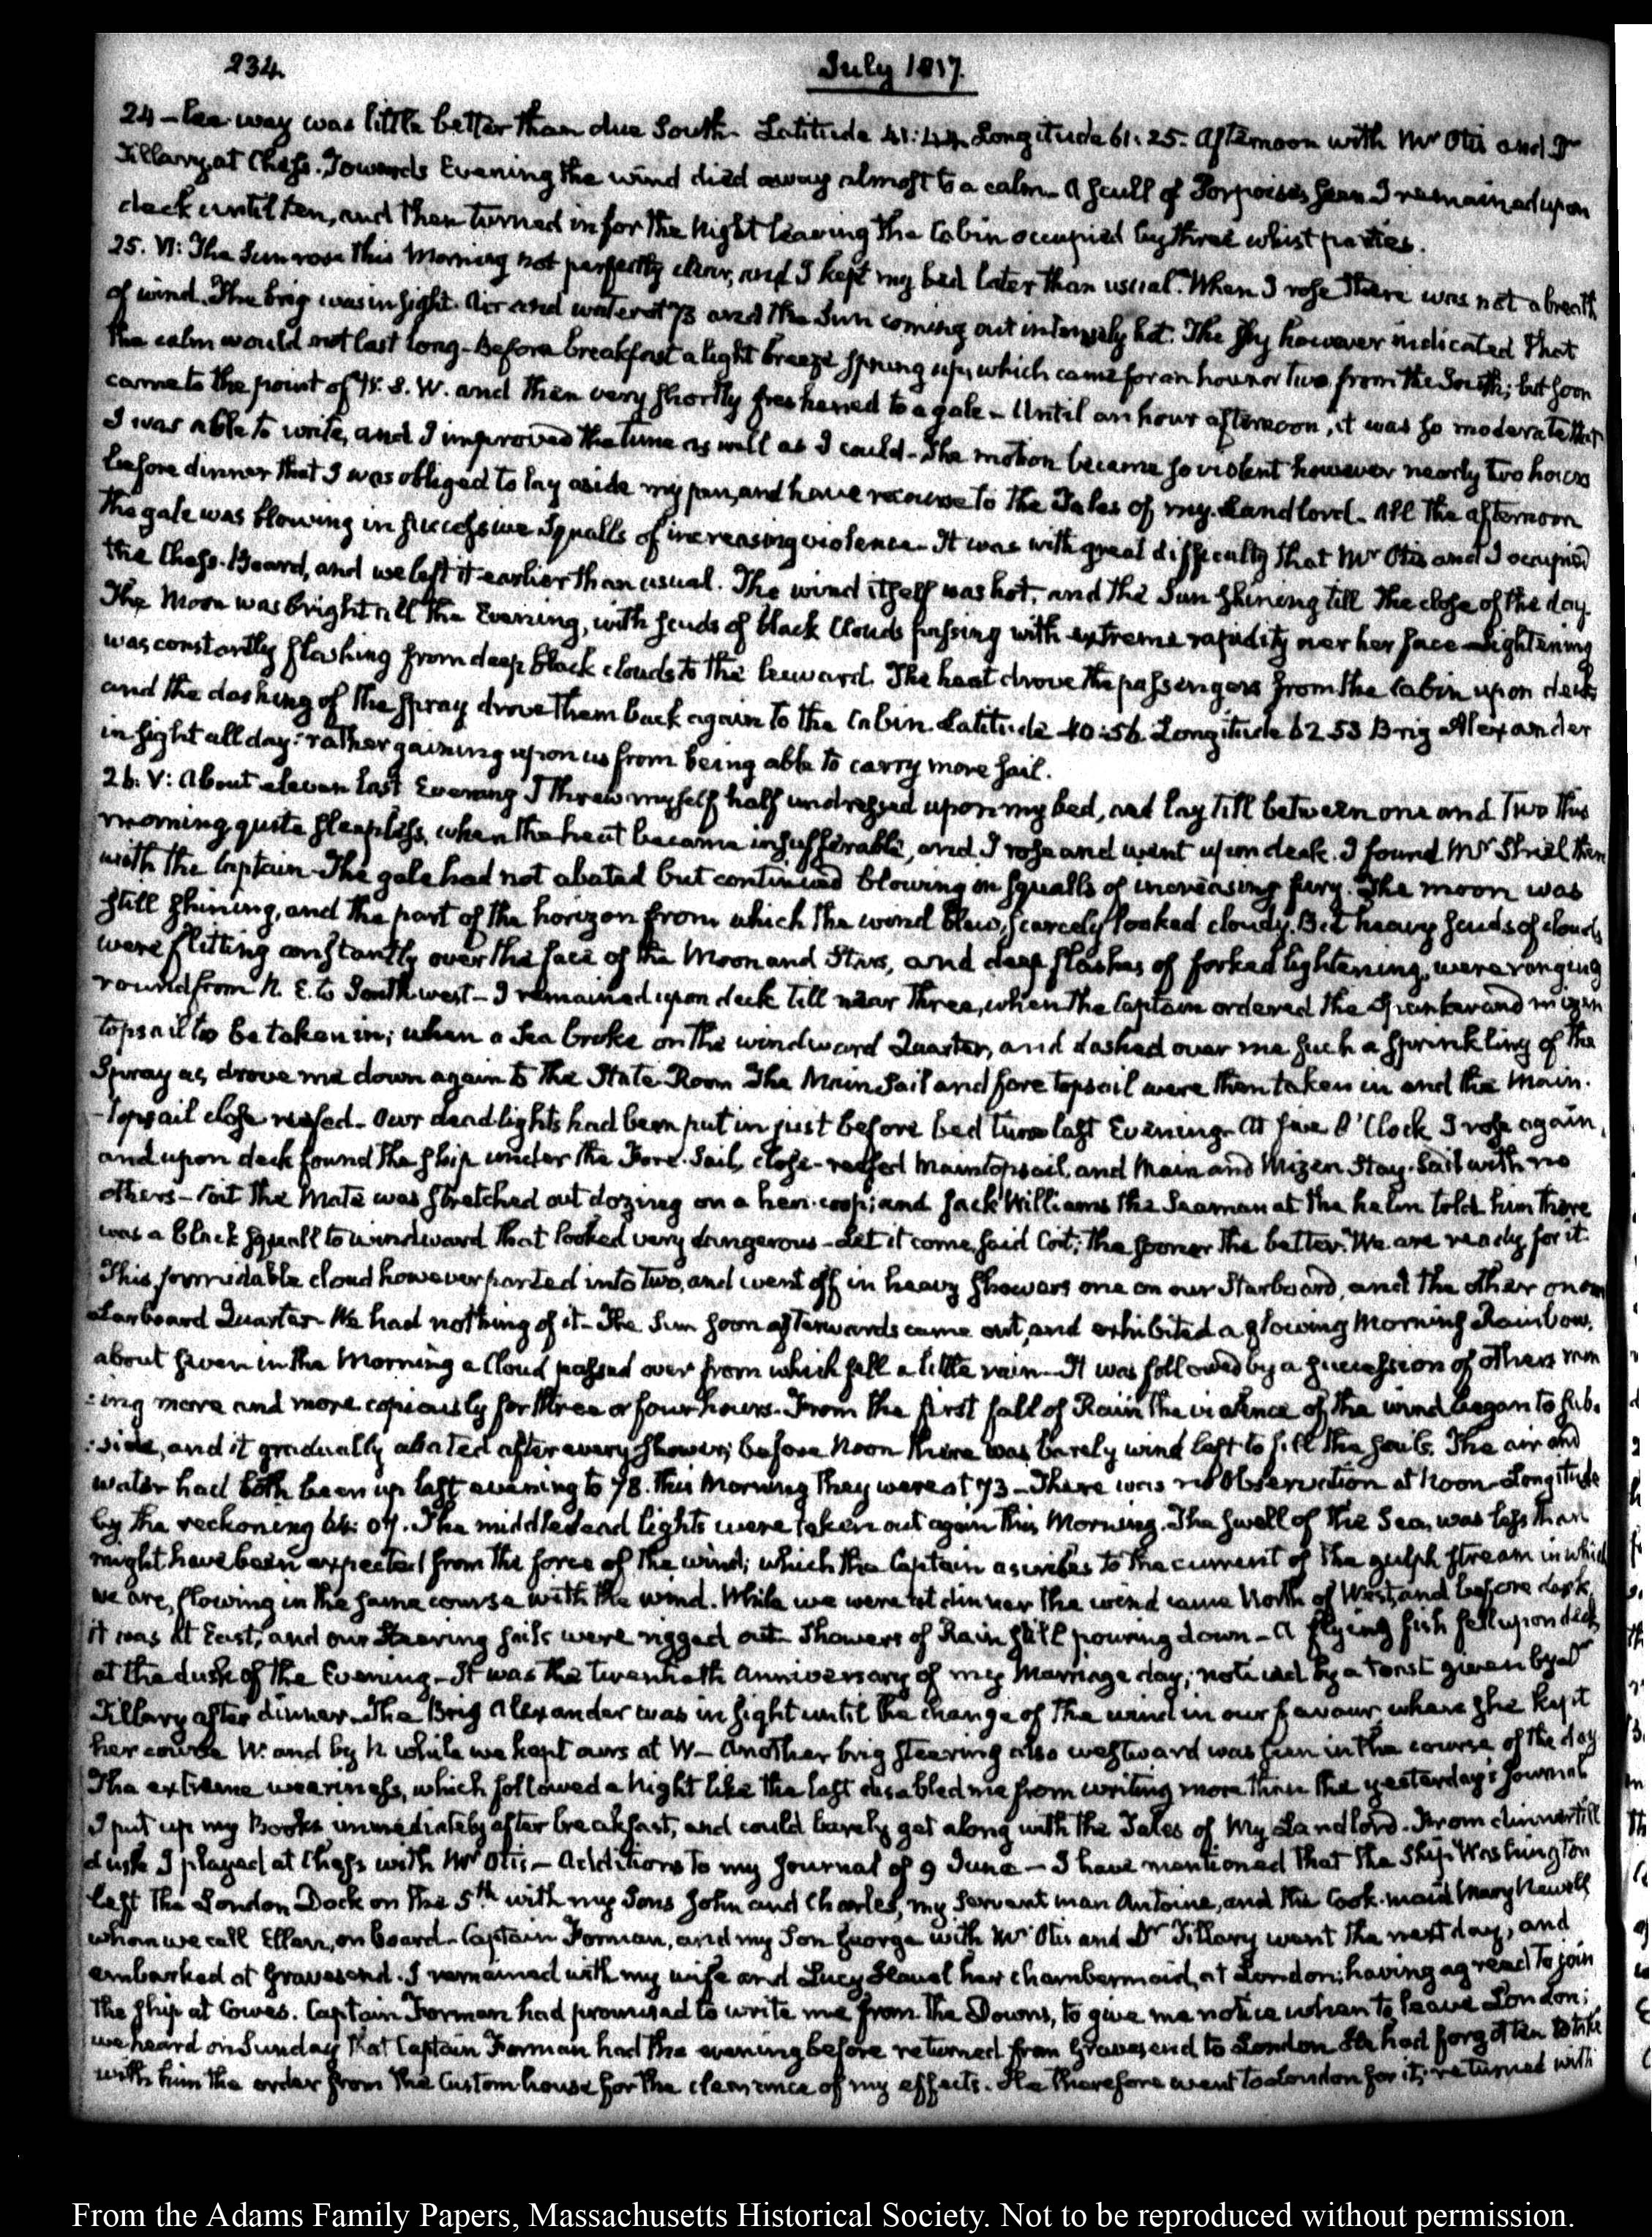 234.
July 1817.
24 – lee-way was little better than due South. Latitude 41:44. Longitude 61:25. Afternoon with Mr Otis and Dr
Tillary at Chess. Towards Evening the wind died away almost to a calm. A scull of Porpoises seen. I remained upon
deck until ten, and then turned in for the Night leaving the Cabin occupied by three whist parties.
25. VI: The Sun rose this Morning not perfectly clear, and I kept my bed later than usual. When I rose there was not a breath
of wind. The brig was in sight. Air and water at 73 and the Sun coming out intensely hot. The sky however indicated that
the calm would not last long. Before breakfast a light breeze sprung up, which came for an hour or two from the South; but soon
came to the point of W. S. W. and then very shortly freshened to a gale – Until an hour afternoon, it was so moderate that
I was able to write, and I improved the time as well as I could – The motion became so violent however nearly two hours
before dinner that I was obliged to lay aside my pen, and have recourse to the Tales of my Landlord. All the afternoon
the gale was blowing in successive Squalls of increasing violence. It was with great difficulty that Mr Otis and I occupied
the Chess-Board, and we left it earlier than usual. The wind itself was hot, and the Sun shining till the close of the day.
The Moon was bright all the Evening, with scuds of black Clouds passing with extreme rapidity over her face – Lightening
was constantly flashing from deep black clouds to the leeward. The heat drove the passengers from the Cabin upon deck
and the dashing of the spray drove them back again to the Cabin. Latitude 40:56. Longitude 62 53 Brig Alexander
in sight all day: rather gaining upon us from being able to carry more sail.
26. V: About eleven last Evening I threw myself half undressed upon my bed, and lay till between one and two this
morning quite sleepless, when the heat became insufferable, and I rose and went upon deck. I found Mr Shiel there
with the Captain – The gale had not abated but continued blowing in squalls of increasing fury. The moon was
still shining, and the part of the horizon from which the wind blew, scarcely looked cloudy. But heavy scuds of clouds
were flitting constantly over the face of the Moon and Stars, and deep flashes of forked lightening, were ranging
round from N. E. to South west – I remained upon deck till near three, when the Captain ordered the Spanker and mizen
topsail to be taken in; when a Sea broke on the windward Quarter, and dashed over me such a sprinkling of the
Spray as, drove me down again to the State Room The Main Sail and fore topsail were then taken in and the Main-
-topsail close reefed. Our dead lights had been put in just before bed time last Evening. At five O'Clock I rose again,
and upon deck found the ship under the Fore-Sail, close-reefed Maintopsail, and Main and Mizen Stay-Sail with no
others – Coit the Mate was stretched out dozing on a hen-coop; and Jack Williams the Seaman at the helm told him there
was a black squall to windward that looked very dangerous – Let it come, said Coit; the sooner the better. We are ready for it.
This formidable cloud however parted into two, and went off in heavy showers one on our Starboard, and the other on our
Larboard Quarter – We had nothing of it – The Sun soon afterwards came out, and exhibited a glowing Morning Rainbow.
about seven in the Morning a Cloud passed over from which fell a little rain – It was followed by a succession of others
:ing more and more copiously for three or four hours. From the first fall of Rain the violence of the wind began to sub-
:side, and it gradually abated after every shower; before Noon there was barely wind left to fill the sails. The air and
water had both been up last evening to 78. This Morning they were at 73 – There was no Observation at Noon – Longitude
by the reckoning 64:07. The middle dead lights were taken out again this Morning. The swell of the Sea, was less than
might have been expected from the force of the wind; which the Captain ascribes to the current of the gulph stream in which
we are, flowing in the same course with the wind. While we were at dinner the wind came North of West, and before dark
it was at East, and our Steering sails were rigged out – Showers of Rain still pouring down – A flying fish fell upon deck
at the dusk of the Evening – It was the twentieth Anniversary of my Marriage day; noticed by a toast given by Dr
Tillary after dinner. The Brig Alexander was in sight until the change of the wind in our favour, where she kept
her course W. and by N while we kept ours at W – Another brig steering also westward was seen in the course of the day
The extreme weariness, which followed a Night like the last disabled me from writing more than the yesterday's Journal
I put up my Books immediately after breakfast, and could barely get along with the Tales of My Landlord. From dinner till
dusk I played at Chess with Mr Otis – Additions to my Journal of 9 June – I have mentioned that the Ship Washington
left the London Dock on the 5th with my Sons John and Charles, my Servant man Antoine, and the Cook-maid Mary Newell
whom we call Ellen, on board. Captain Forman, and my Son George with Mr Otis and Dr Tillary went the next day, and
embarked at Gravesend. I remained with my wife and Lucy her chambermaid, at London; having agreed to join
the ship at Cowes. Captain Forman had promised to write me from the Downs, to give me notice when to leave London;
we heard on Sunday that Captain Forman had the evening before returned from Gravesend to London He had forgotten to take
with him the order from the Custom-house for the clearance of my effects. He therefore went to London for it; returned with
From the Adams Family Papers, Massachusetts Historical Society. Not to be reproduced without permission.